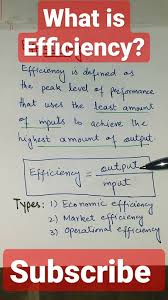 What is
Efficiency?
Efficiency is defined as
the peak level of performance
that uses the least amount
of inputs to achieve the
highest amount of output.
Efficiency = output
input
Types: 1) Economic efficiency
2) Market efficiency
3) Operational efficiency
Subscribe